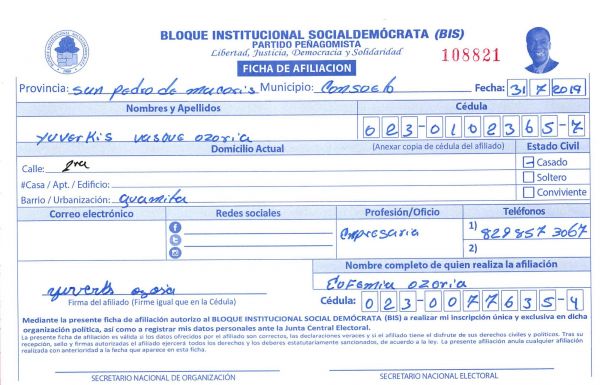 BLOQUE INSTITUCIONAL SOCIALDEMÓCRATA (BIS)
PARTIDO PEÑAGOMISTA
Libertad, Justicia, Democracia y Solidaridad
108821
FICHA DE AFILIACION
Provincia: sun pedro de macoris Municipio: Consuelo Fecha: 31 7 2019
Nombres y Apellidos Cédula
yuverkis vasque ozoria 023-0102365-7
Domicilio Actual (Anexar copia de cédula del afiliado) Estado Civil
Calle: 2ra Casado
#Casa / Apt. / Edificio: Soltero
Barrio / Urbanización: guamita Conviviente
Correo electrónico Redes sociales Profesión/Oficio Teléfonos
Empresaria 1) 829 857 3067
2)
Nombre completo de quien realiza la afiliación
yuverks ozoria Eufemia ozoria
Firma del afiliado (Firme igual que en la Cédula) Cédula: 023-0077635-4
Mediante la presente ficha de afiliación autorizo al BLOQUE INSTITUCIONAL SOCIAL DEMÓCRATA (BIS) a realizar mi inscripción única y exclusiva en dicha
organización política, así como a registrar mis datos personales ante la Junta Central Electoral.
La presente ficha de afiliación es válida si los datos ofrecidos por el afiliado son correctos, las declaraciones veraces y si el afiliado tiene el disfrute de sus derechos civiles y políticos. Tras su
recepción, sello y firmas autorizadas el afiliado ejercerá todos los derechos y los deberes estatutariamente sancionados, de acuerdo a la ley. La presente afiliación anula cualquier afiliación
realizada con anterioridad a la fecha que aparece en esta ficha.
SECRETARIO NACIONAL DE ORGANIZACIÓN SECRETARIO NACIONAL ELECTORAL